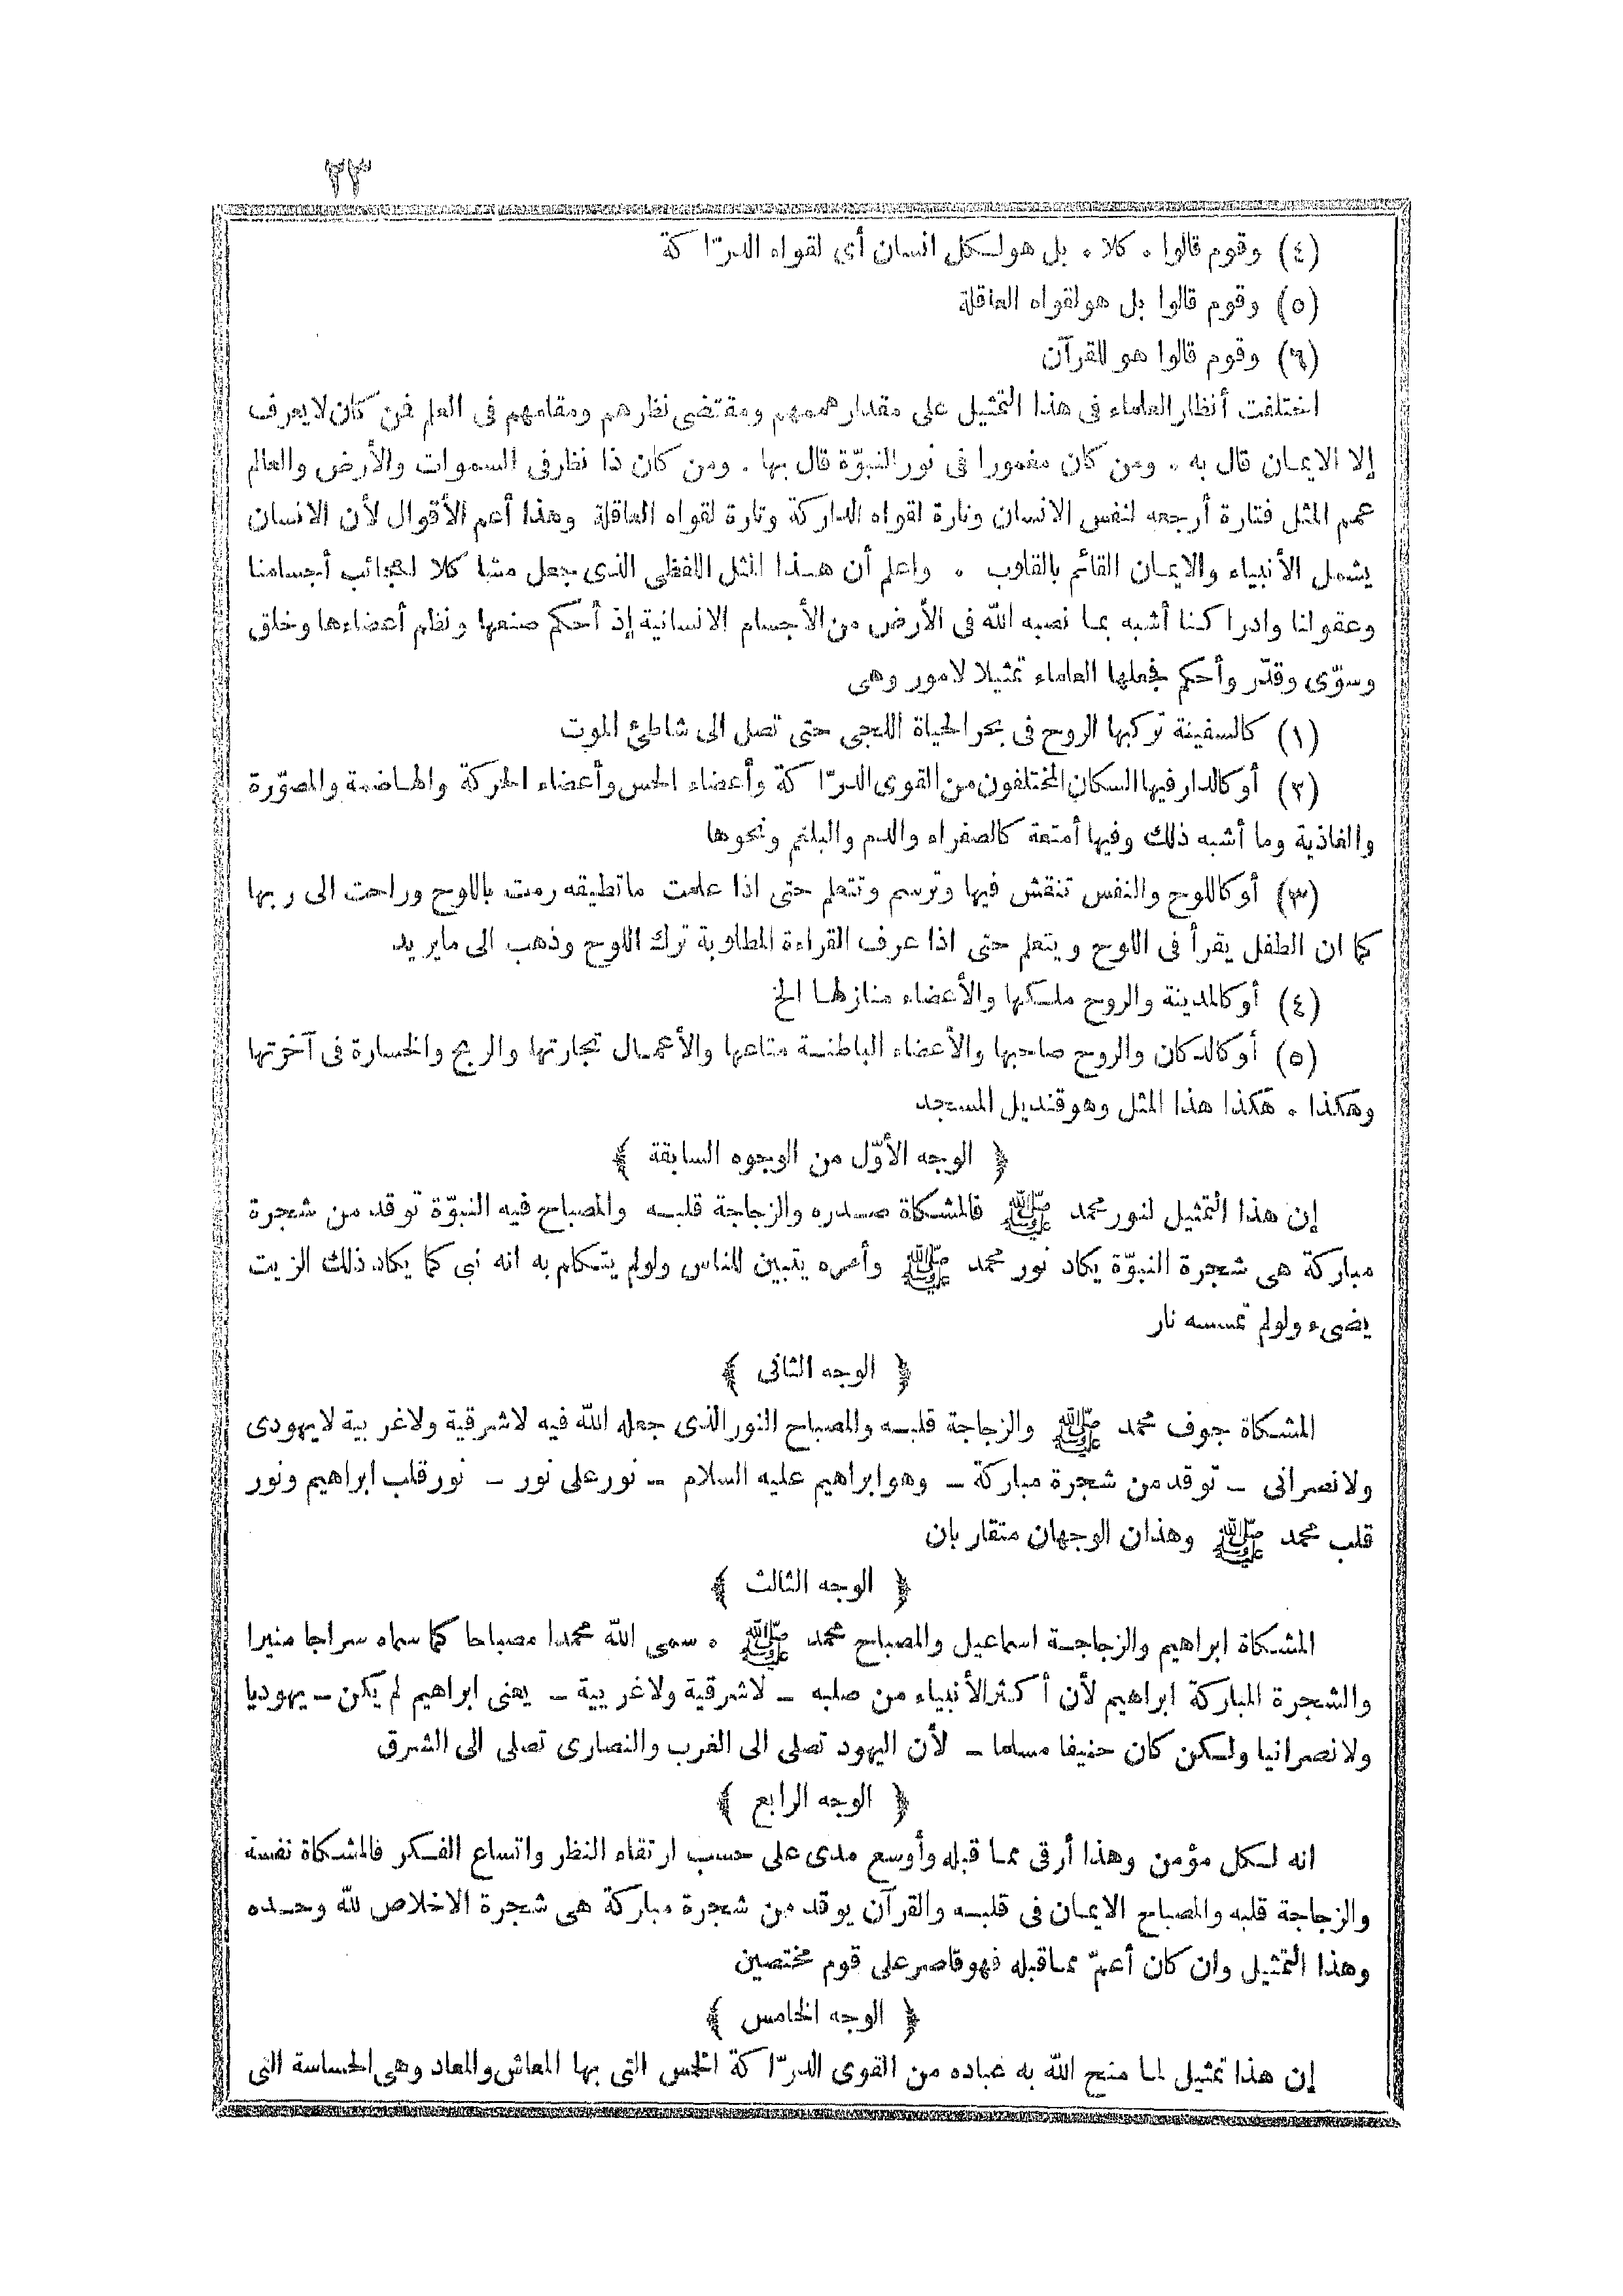 ٢٣
(٤) وقوم قالوا . كلا . بل هو لكل انسان أى لقواه الدرّاكة
(٥) وقوم قالوا بل هو لقواه العاقلة
(٦) وقوم قالوا هو للقرآن
اختلفت أنظار العلماء فى هذا التمثيل على مقدار هممهم ومقتضى نظرهم ومقامهم فى العلم فمن كان لا يعرف
إلا الايمان قال به . ومن كان مغمورا فى نور النبوّة قال بها . ومن كان ذا نظر فى السموات والأرض والعالم
عمم المثل فتارة أرجعه لنفس الانسان وتارة لقواه الداركة وتارة لقواه العاقلة وهذا أعم الأقوال لأن الانسان
يشمل الأنبياء والايمان القائم بالقلوب . واعلم أن هذا المثل اللفظى الذى جعل مشاكلا لعجائب أجسامنا
وعقولنا وادراكنا أشبه بما نصبه الله فى الأرض من الأجسام الانسانية إذ أحكم صنعها ونظم أعضاءها وخلق
وسوّى وقدّر وأحكم فجعلها العلماء تمثيلا لامور وهى
(١) كالسفينة تركبها الروح فى بحر الحياة اللجى حتى تصل الى شاطئ الموت
(٢) أو كالدار فيها السكان المختلفون من القوى الدرّاكة وأعضاء الحس وأعضاء الحركة والهاضمة والمصوّرة
والغاذية وما أشبه ذلك وفيها أمتعة كالصفراء والدم والبلغم ونحوها
(٣) أو كاللوح والنفس تنقش فيها وترسم وتتعلم حتى اذا علمت ما تطيقه رمت باللوح وراحت الى ربها
كما ان الطفل يقرأ فى اللوح ويتعلم حتى اذا عرف القراءة المطلوبة ترك اللوح وذهب الى ما يريد
(٤) أو كالمدينة والروح ملكها والأعضاء منازلها الخ
(٥) أو كالدكان والروح صاحبها والأعضاء الباطنة متاعها والأعمال تجارتها والربح والخسارة فى آخرتها
وهكذا . هكذا هذا المثل وهو قنديل المسجد
﴿ الوجه الأوّل من الوجوه السابقة ﴾
إن هذا التمثيل لنور محمد ﷺ فالمشكاة صدره والزجاجة قلبه والمصباح فيه النبوّة توقد من شجرة
مباركة هى شجرة النبوّة يكاد نور محمد ﷺ وأمره يتبين للناس ولو لم يتكلم به انه نبى كما يكاد ذلك الزيت
يضىء ولو لم تمسسه نار
﴿ الوجه الثانى ﴾
المشكاة جوف محمد ﷺ والزجاجة قلبه والمصباح النور الذى جعله الله فيه لا شرقية ولا غربية لا يهودى
ولا نصرانى - توقد من شجرة مباركة - وهو ابراهيم عليه السلام - نور على نور - نور قلب ابراهيم ونور
قلب محمد ﷺ وهذان الوجهان متقاربان
﴿ الوجه الثالث ﴾
المشكاة ابراهيم والزجاجة اسماعيل والمصباح محمد ﷺ . سمى الله محمدا مصباحا كما سماه سراجا منيرا
والشجرة المباركة ابراهيم لأن أكثر الأنبياء من صلبه - لا شرقية ولا غربية - يعنى ابراهيم لم يكن - يهوديا
ولا نصرانيا ولكن كان حنيفا مسلما - لأن اليهود تصلى الى الغرب والنصارى تصلى الى الشرق
﴿ الوجه الرابع ﴾
انه لكل مؤمن وهذا أرقى مما قبله وأوسع مدى على حسب ارتقاء النظر واتساع الفكر فالمشكاة نفسه
والزجاجة قلبه والمصباح الايمان فى قلبه والقرآن يوقد من شجرة مباركة هى شجرة الاخلاص لله وحده
وهذا التمثيل وان كان أعمّ مما قبله فهو قاصر على قوم مختصين
﴿ الوجه الخامس ﴾
إن هذا تمثيل لما منح الله به عباده من القوى الدرّاكة الخمس التى بها المعاش والمعاد وهى الحساسة التى